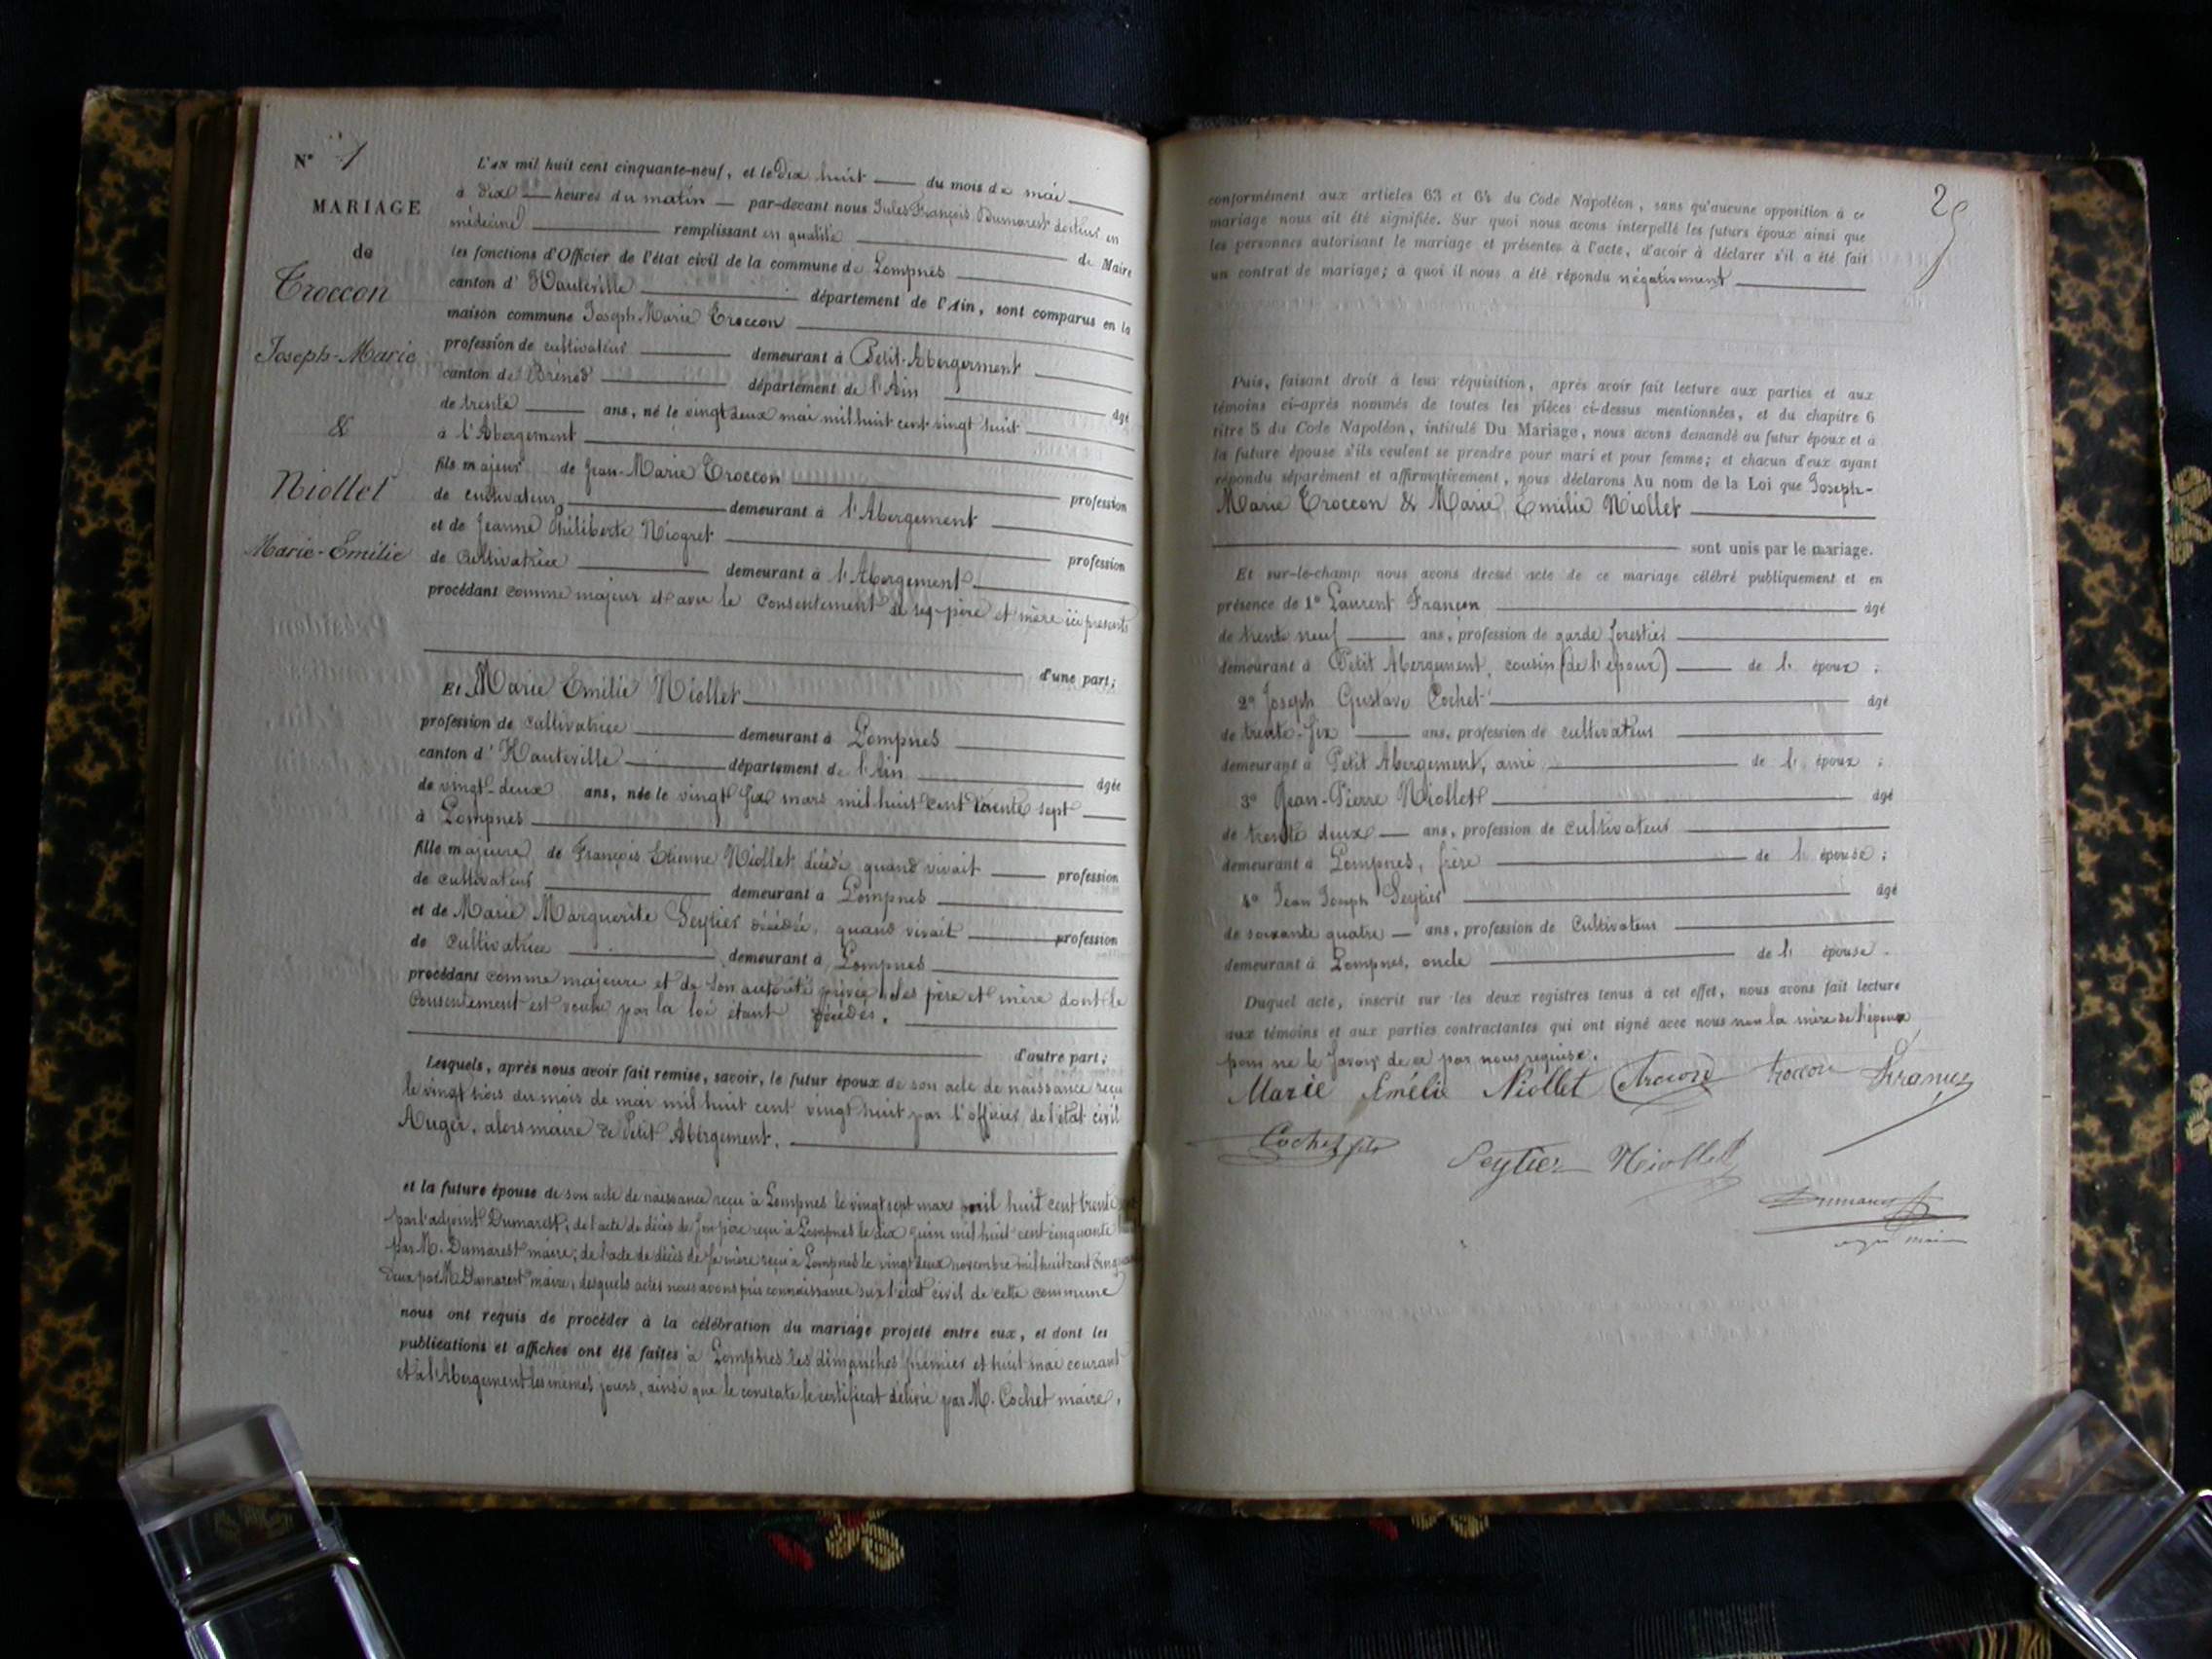 N° 1
MARIAGE
de
Troccon
Joseph-Marie
&
Niollet
Marie-Emilie
L'an mil huit cent cinquante-neuf, et le dix huit du mois de mai
à dix heures du matin par-devant nous Jules François Dumarest docteur en
médecine remplissant en qualité de Maire
les fonctions d'Officier de l'état civil de la commune de Lompnes
canton d'Hauteville département de l'Ain, sont comparus en la
maison commune Joseph Marie Troccon
profession de cultivateur demeurant à Petit-Abergement
canton de Brénod département de l'Ain âgé
de trente ans, né le vingt deux mai mil huit cent vingt huit
à l'Abergement
fils majeur de Jean-Marie Troccon profession
de cultivateur demeurant à l'Abergement
et de Jeanne Philiberte Niogret profession
de cultivatrice demeurant à l'Abergement
procédant comme majeur et avec le Consentement de ses père et mère ici présents
d'une part;
Et Marie Emilie Niollet
profession de cultivatrice demeurant à Lompnes
canton d'Hauteville département de l'Ain âgée
de vingt-deux ans, née le vingt six mars mil huit cent trente sept
à Lompnes
fille majeure de François Etienne Niollet décédé quand vivait profession
de cultivateur demeurant à Lompnes
et de Marie Marguerite Seytier décédée, quand vivait profession
de Cultivatrice demeurant à Lompnes
procédant comme majeure et de son autorité privée, les père et mère dont le
Consentement est voulu par la loi étant décédés.
d'autre part;
Lesquels, après nous avoir fait remise, savoir, le futur époux de son acte de naissance reçu
le vingt trois du mois de mai mil huit cent vingt huit par l'officier de l'état civil
Auger, alors maire de Petit Abergement.
et la future épouse de son acte de naissance reçu à Lompnes le vingt sept mars mil huit cent trente
par l'adjoint Dumarest; de l'acte de décès de son père reçu à Lompnes le dix juin mil huit cent cinquante
par M. Dumarest maire; de l'acte de décès de sa mère reçu à Lompnes le vingt deux novembre mil huit cent cinquante
deux par M. Dumarest maire, desquels actes nous avons pris connaissance sur l'état civil de cette commune
nous ont requis de procéder à la célébration du mariage projeté entre eux, et dont les
publications et affiches ont été faites à Lompnes les dimanches premier et huit mai courant
et à l'Abergement les mêmes jours, ainsi que le constate le certificat délivré par M. Cochet maire,
conformément aux articles 63 et 64 du Code Napoléon, sans qu'aucune opposition à ce
mariage nous ait été signifiée. Sur quoi nous avons interpellé les futurs époux ainsi que
les personnes autorisant le mariage et présentes à l'acte, d'avoir à déclarer s'il a été fait
un contrat de mariage; à quoi il nous a été répondu négativement
Puis, faisant droit à leur réquisition, après avoir fait lecture aux parties et aux
témoins ci-après nommés de toutes les pièces ci-dessus mentionnées, et du chapitre 6
titre 5 du Code Napoléon, intitulé Du Mariage, nous avons demandé au futur époux et à
la future épouse s'ils veulent se prendre pour mari et pour femme; et chacun d'eux ayant
répondu séparément et affirmativement, nous déclarons Au nom de la Loi que Joseph-
Marie Troccon & Marie Emilie Niollet
sont unis par le mariage.
Et sur-le-champ nous avons dressé acte de ce mariage célébré publiquement et en
présence de 1° Laurent Françon âgé
de trente neuf ans, profession de garde forestier
demeurant à Petit Abergement, cousin (de l'époux) de l'époux;
2° Joseph Gustave Cochet âgé
de trente-six ans, profession de cultivateur
demeurant à Petit Abergement, ami de l'époux;
3° Jean-Pierre Niollet âgé
de trente deux ans, profession de cultivateur
demeurant à Lompnes, frère de l'épouse;
4° Jean Joseph Seytier âgé
de soixante quatre ans, profession de Cultivateur
demeurant à Lompnes, oncle de l'épouse.
Duquel acte, inscrit sur les deux registres tenus à cet effet, nous avons fait lecture
aux témoins et aux parties contractantes qui ont signé avec nous non la mère de l'époux
pour ne le savoir de ce par nous requise.
Marie Emélie Niollet Troccon troccon
Cochet fils
Seytier Niollet
Dumarest